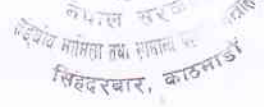 नेपाल सरका
मामिला तथा सामान्य
सिंहदरबार, काठमाडौं